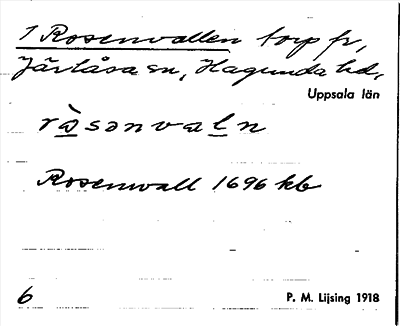 1 Rosenvallen torp fr,
Järlåsa sn, Hagunda hd,
Uppsala län
ràsənvaln
Rosenwall 1696 kb
6
P. M. Lijsing 1918